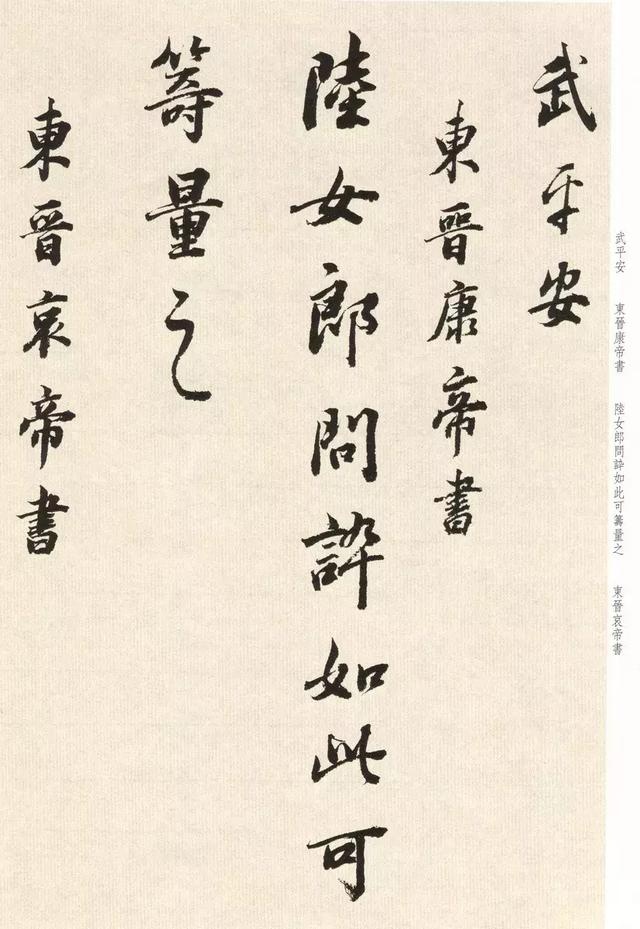 武平安
東晉康帝書
陸女郎問誶如此可
籌量之
東晉哀帝書
武平安　東晉康帝書　陸女郎問誶如此可籌量之　東晉哀帝書